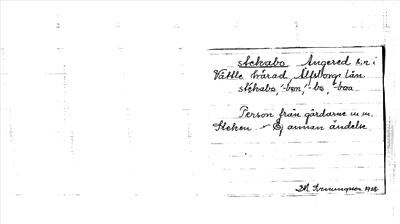 stekabo Angered sn i
Vättle härad, Älfsborgs län.
stekabo, -bon, -bo, -boa
Person från gårdarne m.m.
Steken – Ej annan ändelse.
1928